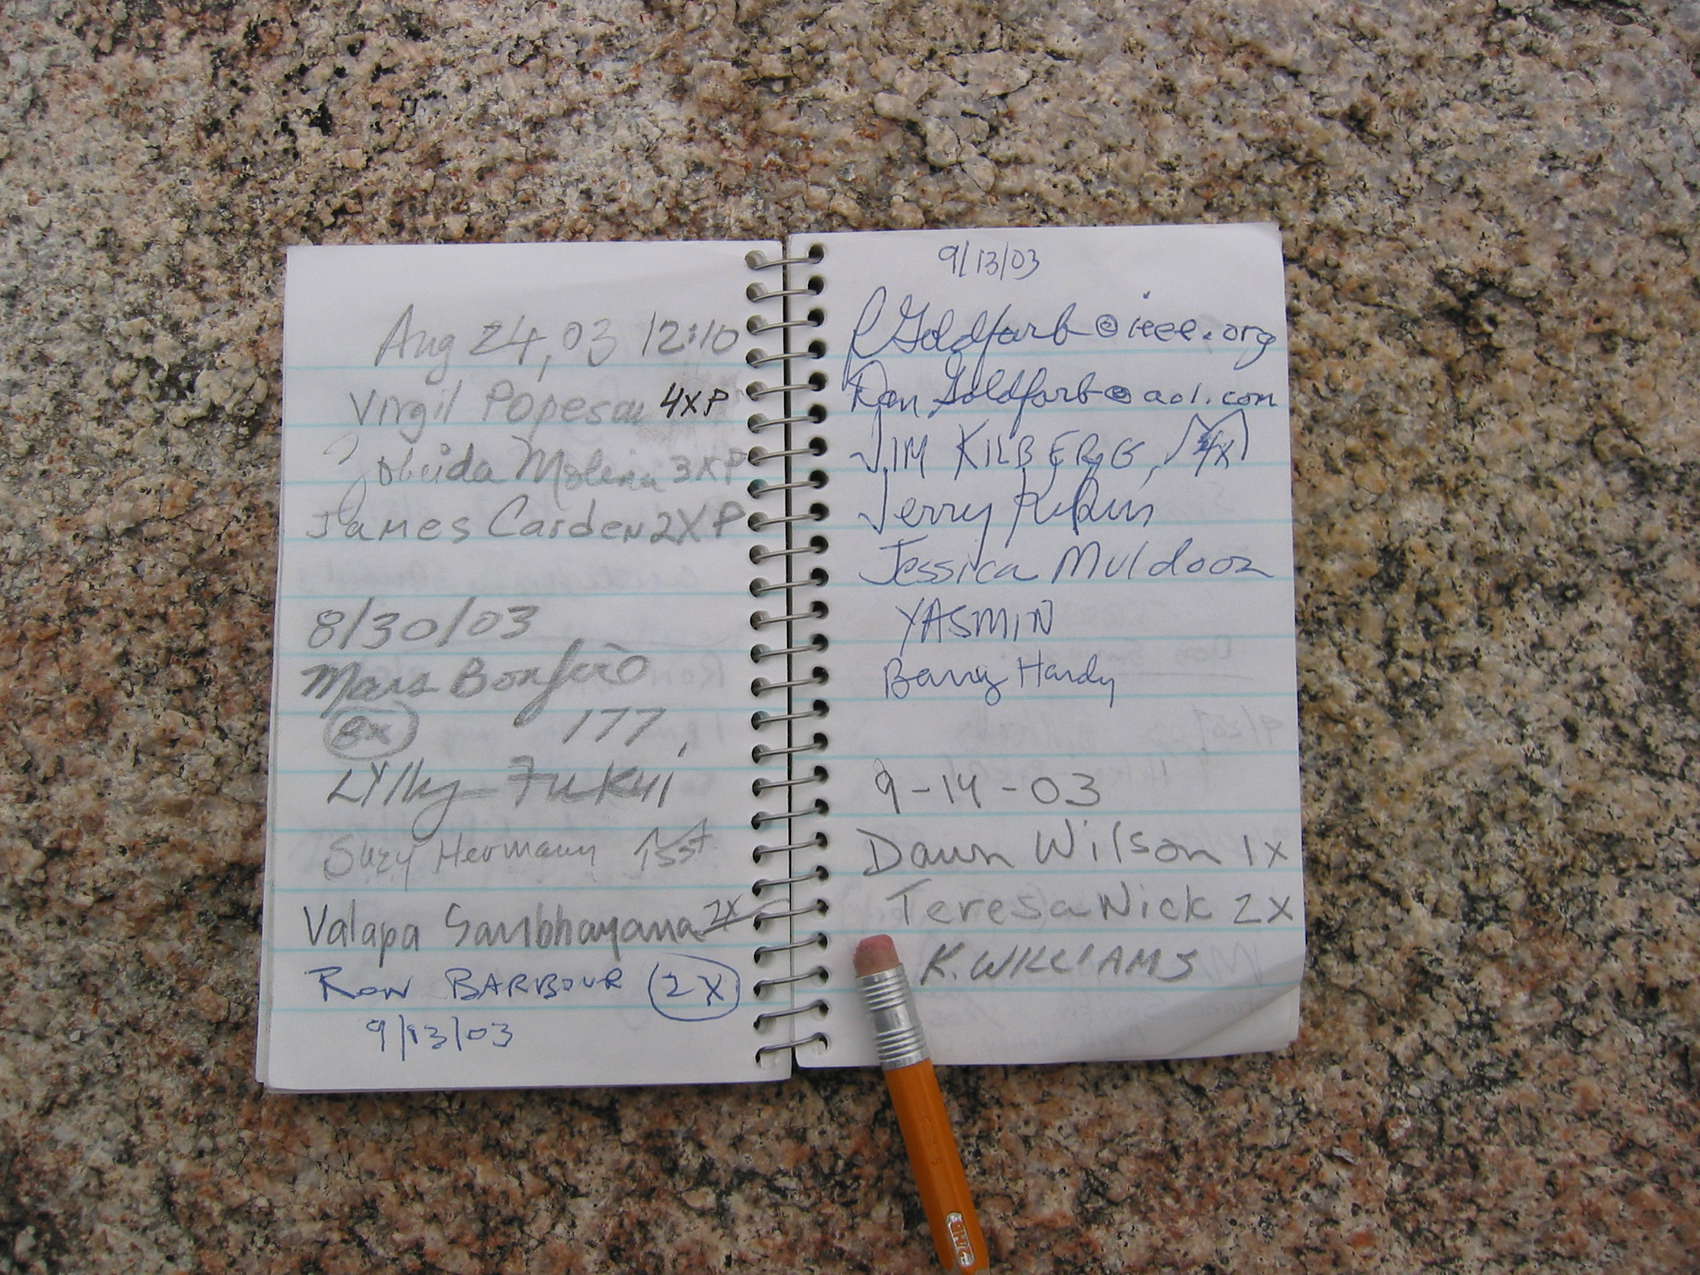 Aug 24, 03 12:10
Virgil Popescu 4XP
Zobeida Molina 3XP
James Carden 2XP
8/30/03
Mars Bonfire
8x 177,
Lylly Fukui
Suzy Hermann 1st
Valapa Sanbhayana 2X
RON BARBOUR 2X
9/13/03
9/13/03
RGoldfarb@ieee.org
RonGoldfarb@aol.com
JIM KILBERG, 4X
Jerry Rubin
Jessica Muldoon
YASMIN
Barry Hardy
9-14-03
Dawn Wilson 1x
Teresa Nick 2X
K. WILLIAMS